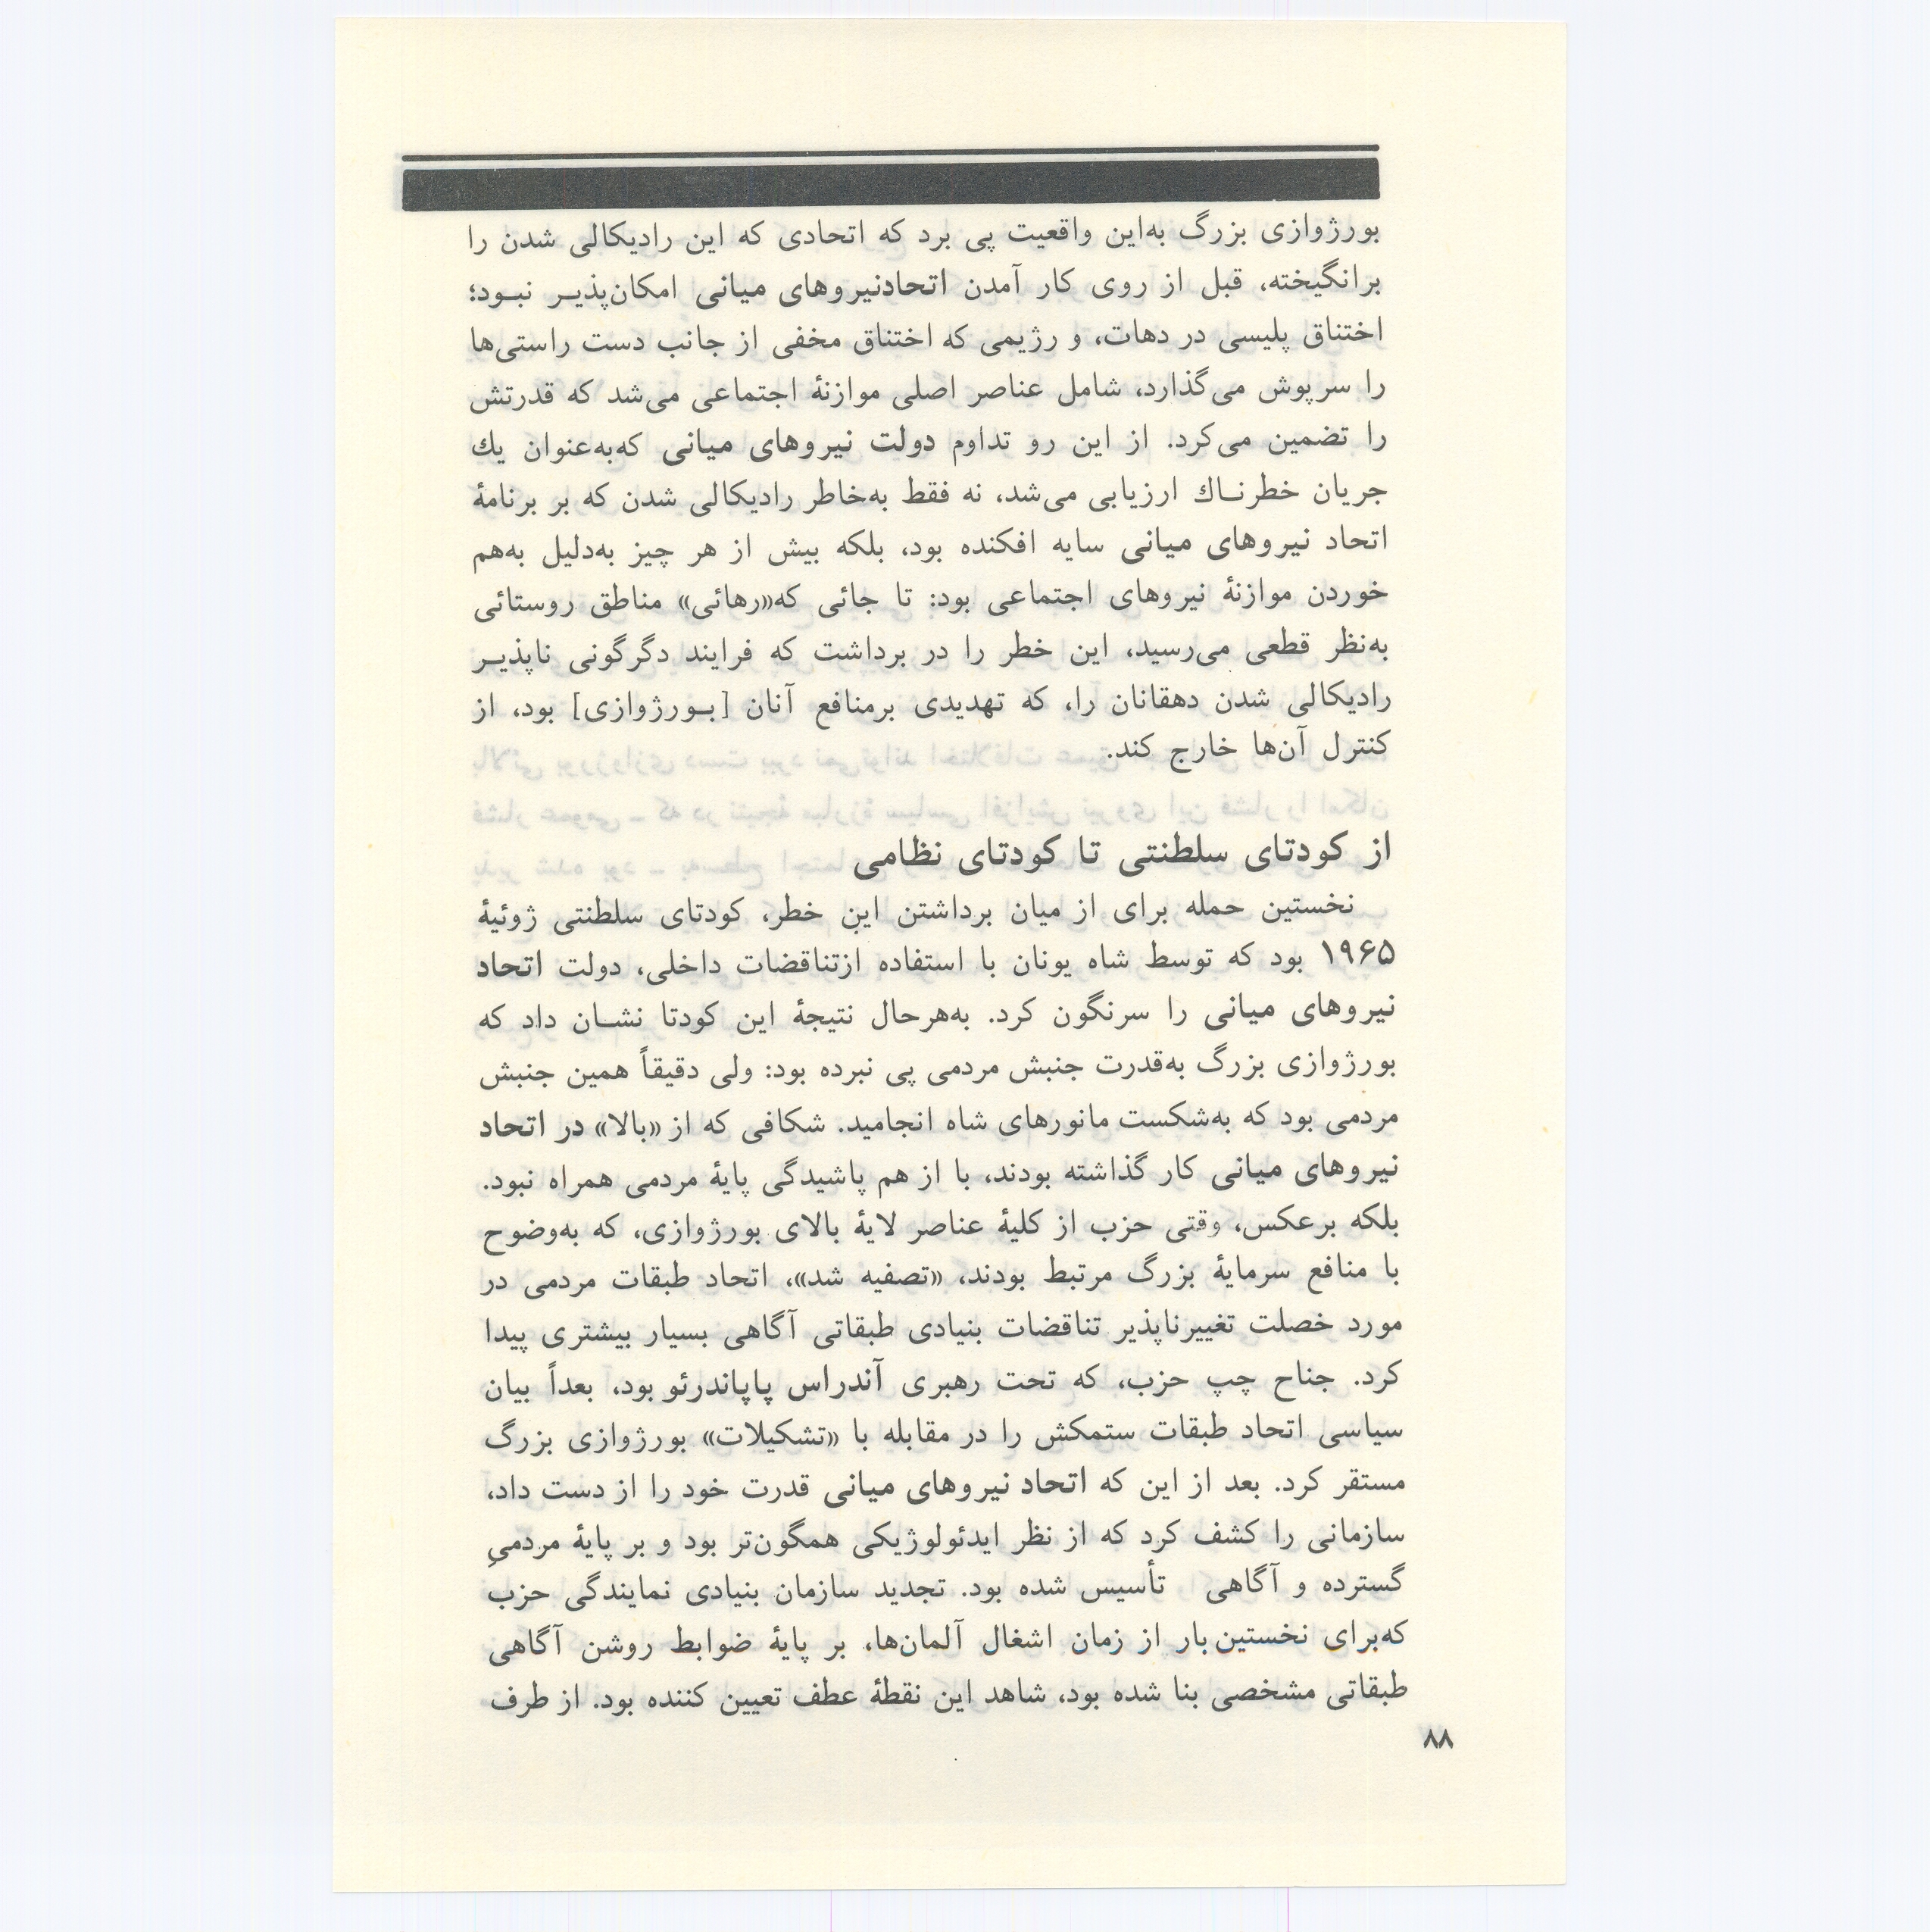 بورژوازی بزرگ به‌این واقعیت پی برد که اتحادی که این رادیکالی شدن را
برانگیخته، قبل از روی کار آمدن اتحادنیروهای میانی امکان‌پذیـر نبـود؛
اختناق پلیسی در دهات، و رژیمی که اختناق مخفی از جانب دست راستی‌ها
را سرپوش می‌گذارد، شامل عناصر اصلی موازنهٔ اجتماعی می‌شد که قدرتش
را تضمین می‌کرد. از این رو تداوم دولت نیروهای میانی که‌به‌عنوان یك
جریان خطرنـاك ارزیابی می‌شد، نه فقط به‌خاطر رادیکالی شدن که بر برنامهٔ
اتحاد نیروهای میانی سایه افکنده بود، بلکه بیش از هر چیز به‌دلیل به‌هم
خوردن موازنهٔ نیروهای اجتماعی بود: تا جائی که«رهائی» مناطق روستائی
به‌نظر قطعی می‌رسید، این خطر را در برداشت که فرایند دگرگونی ناپذیـر
رادیکالی شدن دهقانان را، که تهدیدی برمنافع آنان [بـورژوازی] بود، از
کنترل آن‌ها خارج کند.
از کودتای سلطنتی تا کودتای نظامی
نخستین حمله برای از میان برداشتن این خطر، کودتای سلطنتی ژوئیهٔ
۱۹۶۵ بود که توسط شاه یونان با استفاده ازتناقضات داخلی، دولت اتحاد
نیروهای میانی را سرنگون کرد. به‌هرحال نتیجهٔ این کودتا نشـان داد که
بورژوازی بزرگ به‌قدرت جنبش مردمی پی نبرده بود: ولی دقیقاً همین جنبش
مردمی بود که به‌شکست مانورهای شاه انجامید. شکافی که از «بالا» در اتحاد
نیروهای میانی کار گذاشته بودند، با از هم پاشیدگی پایهٔ مردمی همراه نبود.
بلکه برعکس، وقتی حزب از کلیهٔ عناصر لایهٔ بالای بورژوازی، که به‌وضوح
با منافع سرمایهٔ بزرگ مرتبط بودند، «تصفیه شد»، اتحاد طبقات مردمی در
مورد خصلت تغییرناپذیر تناقضات بنیادی طبقاتی آگاهی بسیار بیشتری پیدا
کرد. جناح چپ حزب، که تحت رهبری آندراس پاپاندرئو بود، بعداً بیان
سیاسی اتحاد طبقات ستمکش را در مقابله با «تشکیلات» بورژوازی بزرگ
مستقر کرد. بعد از این که اتحاد نیروهای میانی قدرت خود را از دست داد،
سازمانی را کشف کرد که از نظر ایدئولوژیکی همگون‌تر بود و بر پایهٔ مردمیِ
گسترده و آگاهی تأسیس شده بود. تجدید سازمان بنیادی نمایندگی حزب
که‌برای نخستین‌بار از زمان اشغال آلمان‌ها، بر پایهٔ ضوابط روشن آگاهی
طبقاتی مشخصی بنا شده بود، شاهد این نقطهٔ عطف تعیین کننده بود. از طرف
۸۸